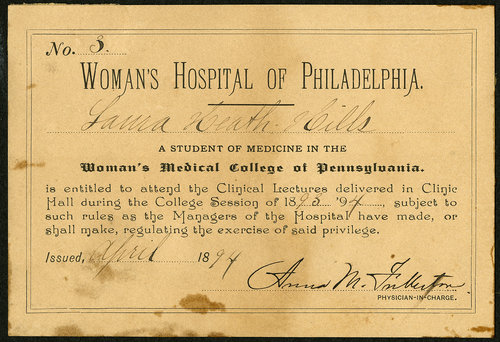 No. 3.
WOMAN'S HOSPITAL OF PHILADELPHIA.
Laura Heath-Hills
A STUDENT OF MEDICINE IN THE
Woman's Medical College of Pennsylvania.
is entitled to attend the Clinical Lectures delivered in Clinic
Hall during the College Session of 1893 '94, subject to
such rules as the Managers of the Hospital have made, or
shall make, regulating the exercise of said privilege.
Issued, April 1894
Anna M. Fullerton
PHYSICIAN-IN-CHARGE.